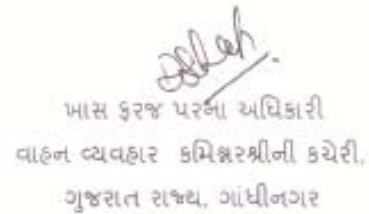 ખાસ ફરજ પરના અધિકારી
વાહન વ્યવહાર કમિશ્નરશ્રીની કચેરી,
ગુજરાત રાજ્ય, ગાંધીનગર